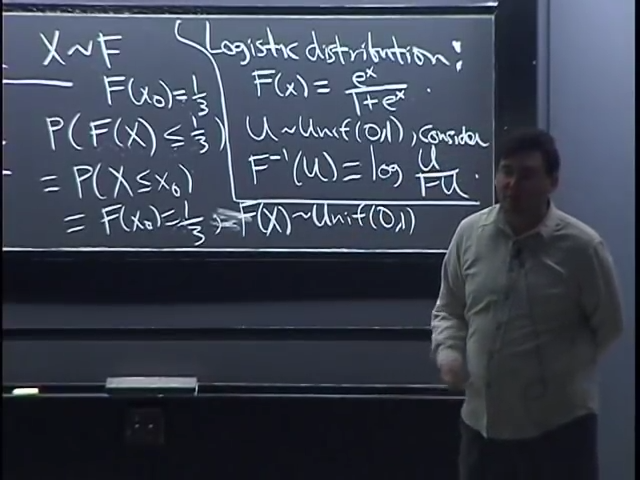 X ~ F
F(x₀) = 1/3
P(F(X) ≤ 1/3)
= P(X ≤ x₀)
= F(x₀) = 1/3
Logistic distribution:
F(x) = eˣ/(1+eˣ).
U ~ Unif(0,1), consider
F⁻¹(U) = log U/(1-U).
F(X) ~ Unif(0,1)